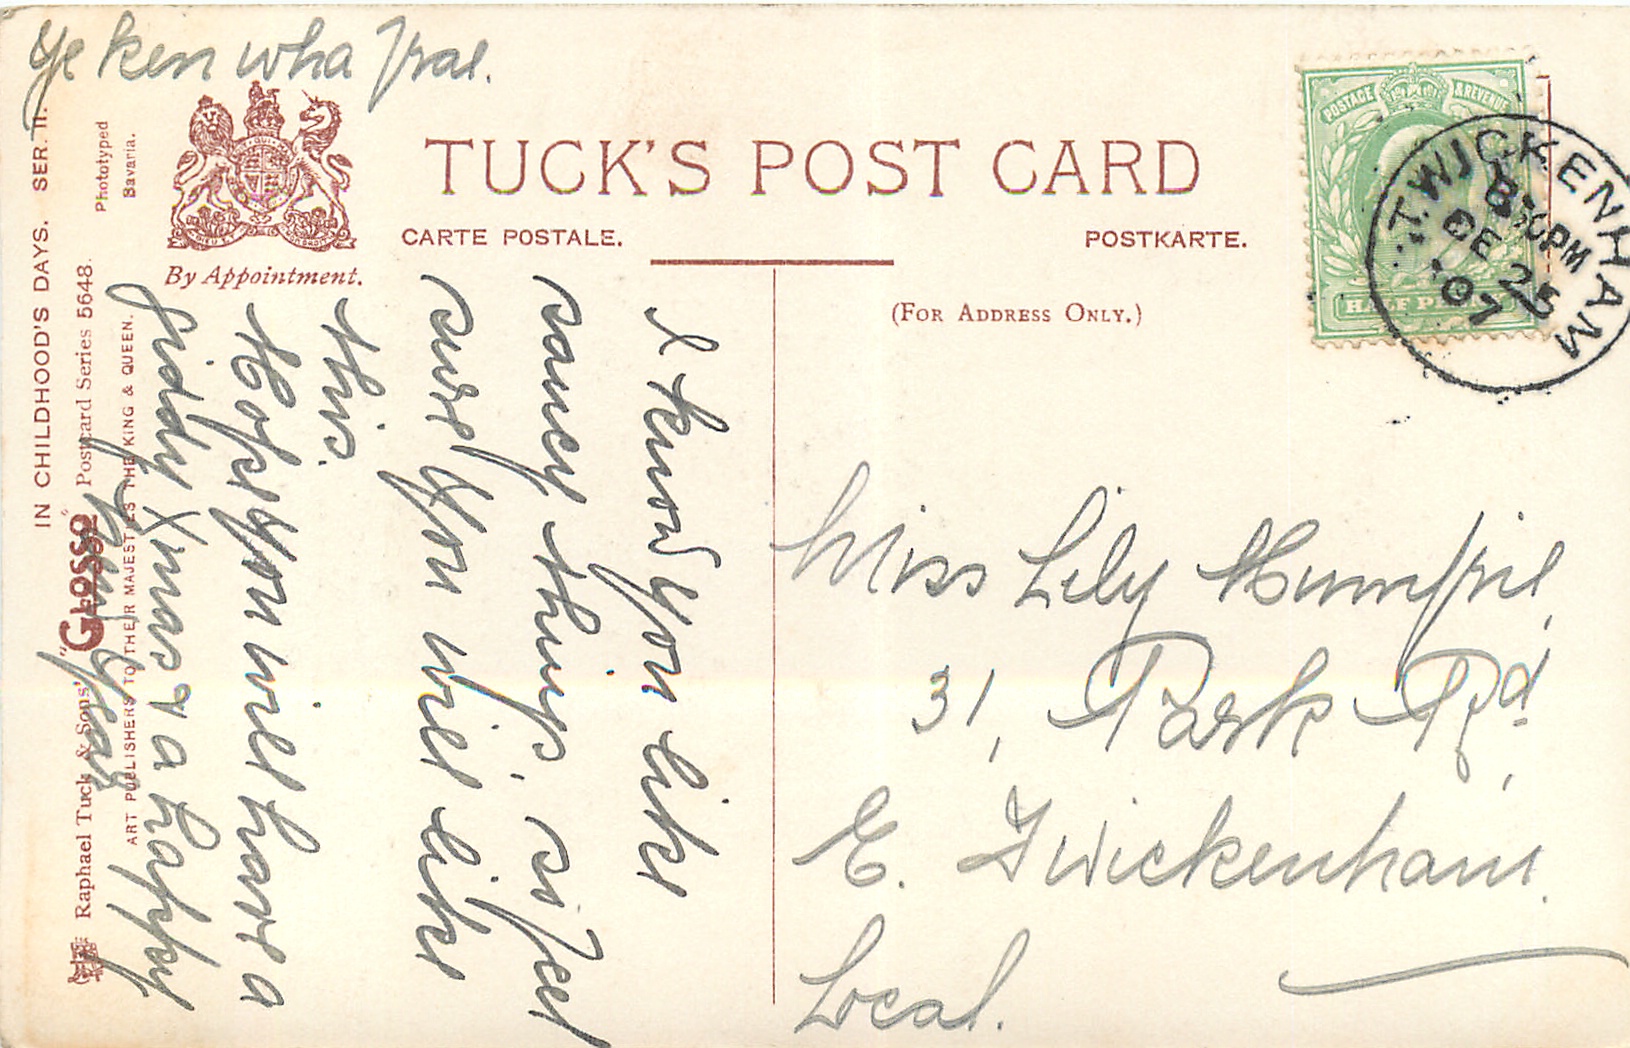 Ye ken wha frae.
TUCK'S POST CARD
CARTE POSTALE.
POSTKARTE.
(FOR ADDRESS ONLY.)
By Appointment.
Phototyped
Bavaria.
IN CHILDHOOD'S DAYS. SER. II.
Raphael Tuck & Sons' "GLOSSO" Postcard Series 5648.
ART PUBLISHERS TO THEIR MAJESTIES THE KING & QUEEN.
POSTAGE & REVENUE
HALF PENNY
TWICKENHAM
8.30PM
DE 25
07
I know you like
saucy things, so feel
sure you will like
this.
Hope you will have a
giddy Xmas & a happy
New Year
Miss Lily Humfril,
31, Park Rd,
E. Twickenham.
Local.